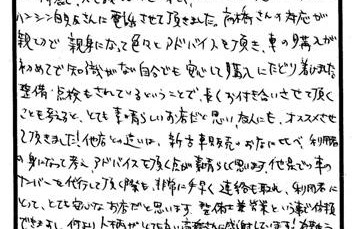 ハンシン自販さんに電話させて頂きました。高橋さんの対応が
親切で親身になって色々とアドバイスを頂き、車の購入が
初めてで知識がない自分でも安心して購入にたどり着けました
整備・点検もされているということで、長くお付き合いさせて頂く
ことも考えると、とても素晴らしいお店だと思い、友人にも、オススメさせ
て頂きました!他店との違いは、新古車販売のお店に比べ、利用者
の身になって考え、アドバイスを頂く点が素晴らしく思います。他県での車の
ナンバーも代行して頂く際も、非常に手早く連絡も取れ、利用者に
とって、とても安心なお店だと思います。整備士兼営業という事で信頼
できますし、何より人柄がとても良い高橋さんに感謝しています!